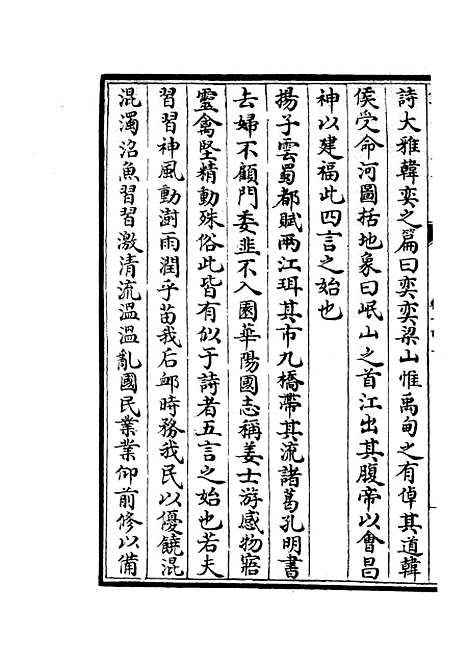 詩大雅韓奕之篇曰奕奕梁山惟禹甸之有倬其道韓
侯受命河圖括地象曰岷山之首江出其腹帝以會昌
神以建福此四言之始也
揚子雲蜀都賦兩江珥其市九橋帶其流諸葛孔明書
去婦不顧門委韭不入園華陽國志稱姜士游感物寤
靈禽堅精動殊俗此皆有似于詩者五言之始也若夫
習習神風動澍雨潤乎苗我后卹時務我民以優饒混
混濁沼魚習習激清流溫溫亂國民業業仰前修以備